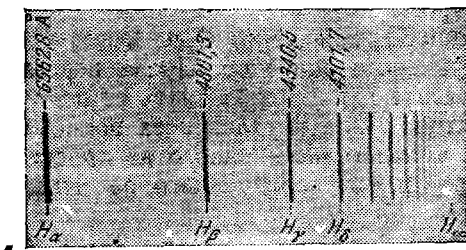 6562,8 Å
4340,5
4101,7
Hα
Hβ
Hγ
Hδ
H∞